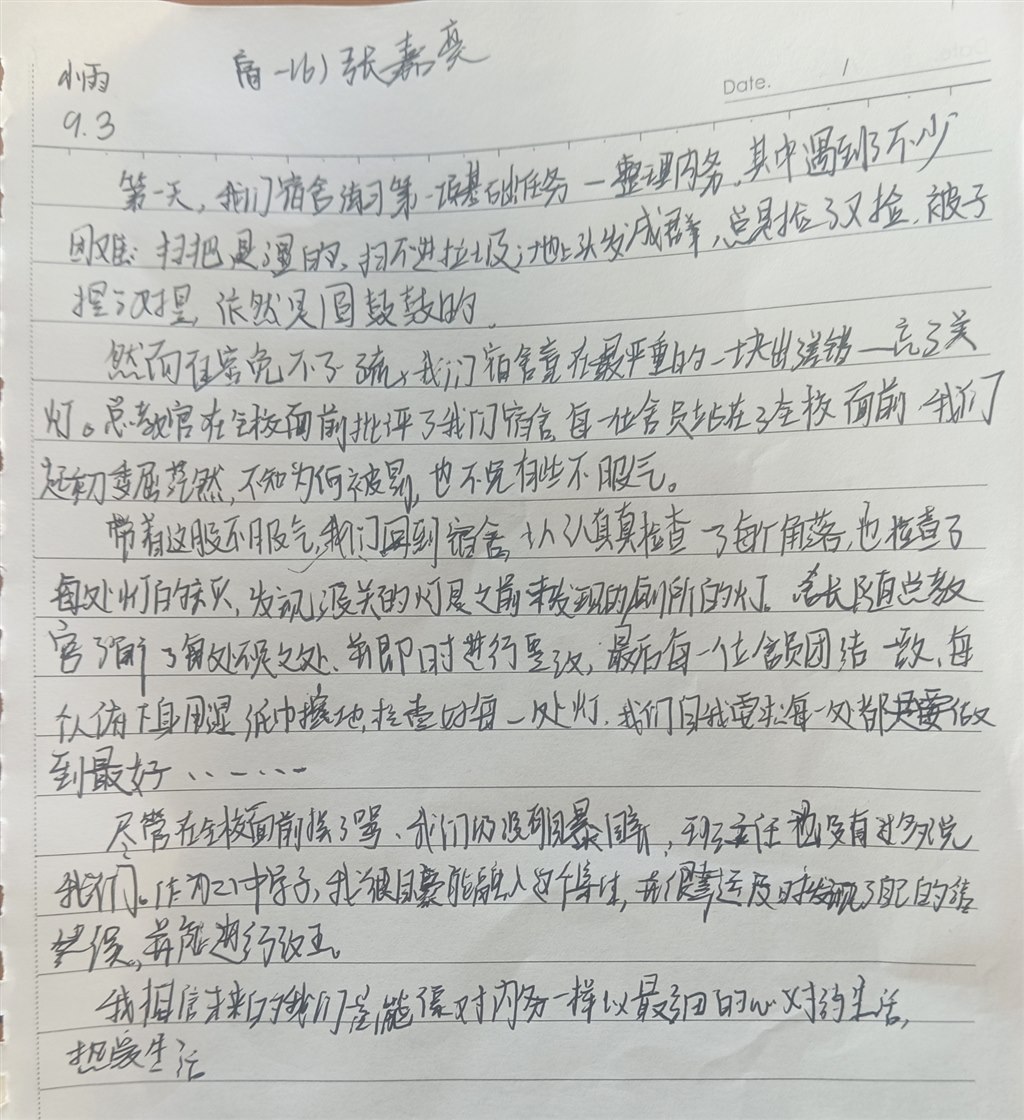 小雨 高一(6) 张嘉奕
Date. /
9.3
第一天,我们宿舍演习第一项基础任务一整理内务,其中遇到了不少
困难:扫把是湿的,扫不进垃圾;地上头发成群,总是捡了又捡,被子
捏了又捏,依然是圆鼓鼓的。
然而百密免不了一疏,我们宿舍竟在最严重的一块出差错—忘了关
灯。总教官在全校面前批评了我们宿舍,每一位舍员站在了全校面前,我们
起初委屈茫然,不知为何被骂,也不免有些不服气。
带着这股不服气,我们回到宿舍,认认真真检查了每个角落,也检查了
每处灯的情况,发现没关的灯是之前未发现的厕所的灯。舍长随总教
官了解了每处不足之处,并即时进行更改,最后每一位舍员团结一致,每
人俯下身用湿纸巾擦地,检查好每一处灯,我们自我要求每一处都要做
到最好……
尽管在全校面前挨了骂,我们仍没有自暴自弃,班主任也没有过多说
我们。作为二中学子,我很自豪能融入这个集体,并很幸运及时发现了自己的错
误,并能进行改正。
我相信未来的我们定能像对内务一样以最细的心对待生活,
热爱生活